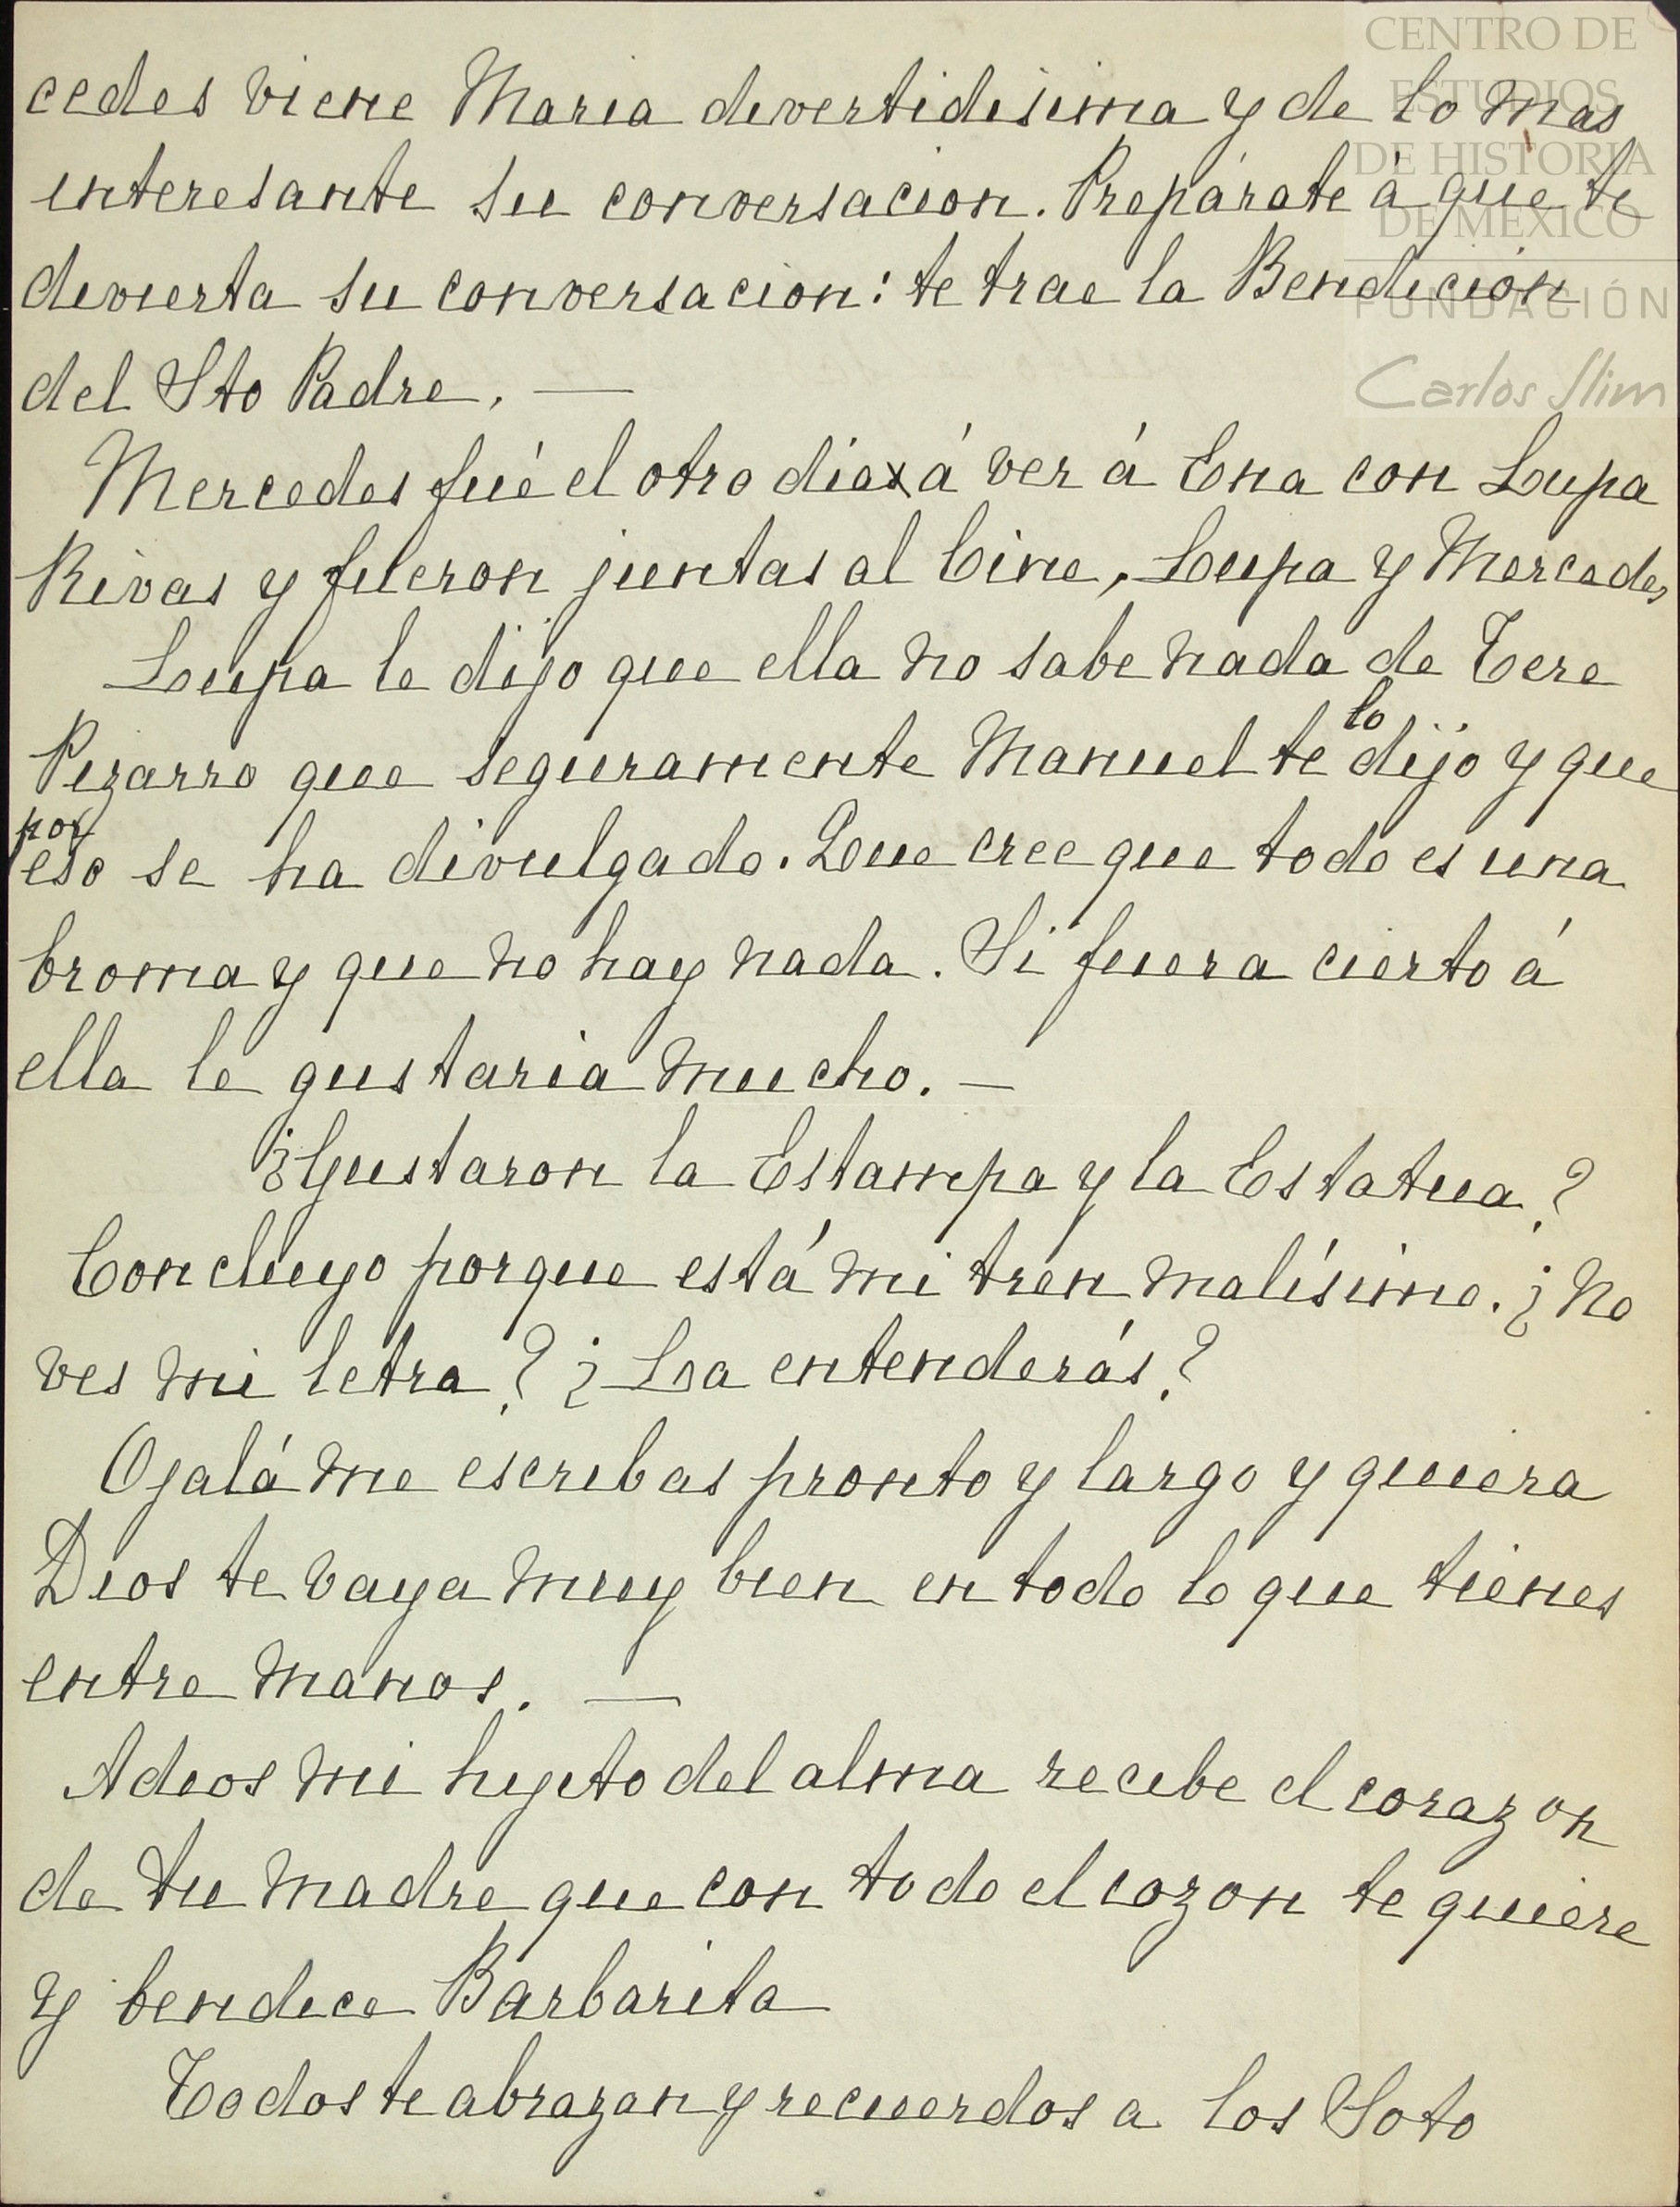 CENTRO DE
ESTUDIOS
DE HISTORIA
DE MÉXICO
FUNDACIÓN
Carlos Slim
cedes viene Maria divertidisima y de lo mas
interesante su conversacion. Prepárate á que te
divierta su conversacion: te trae la Bendición
del Sto Padre. —
Mercedes fué el otro dia á ver á Ena con Lupa
Rivas y fueron juntas al Cine, Lupa y Mercedes
Lupa le dijo que ella no sabe nada de Tere
Pizarro que seguramente Manuel te lo dijo y que
por eso se ha divulgado. Que cree que todo es una
broma y que no hay nada. Si fuera cierto á
ella le gustaria mucho. —
¿Gustaron la Estampa y la Estatua?
Concluyo porque está mi tren malísimo. ¿No
ves mi letra? ¿La entenderás?
Ojalá me escribas pronto y largo y quiera
Dios te vaya muy bien en todo lo que tienes
entre manos. —
Adios mi hijito del alma recibe el corazon
de tu madre que con todo el cozon te quiere
y bendice Barbarita
Todos te abrazan y recuerdos a los Soto